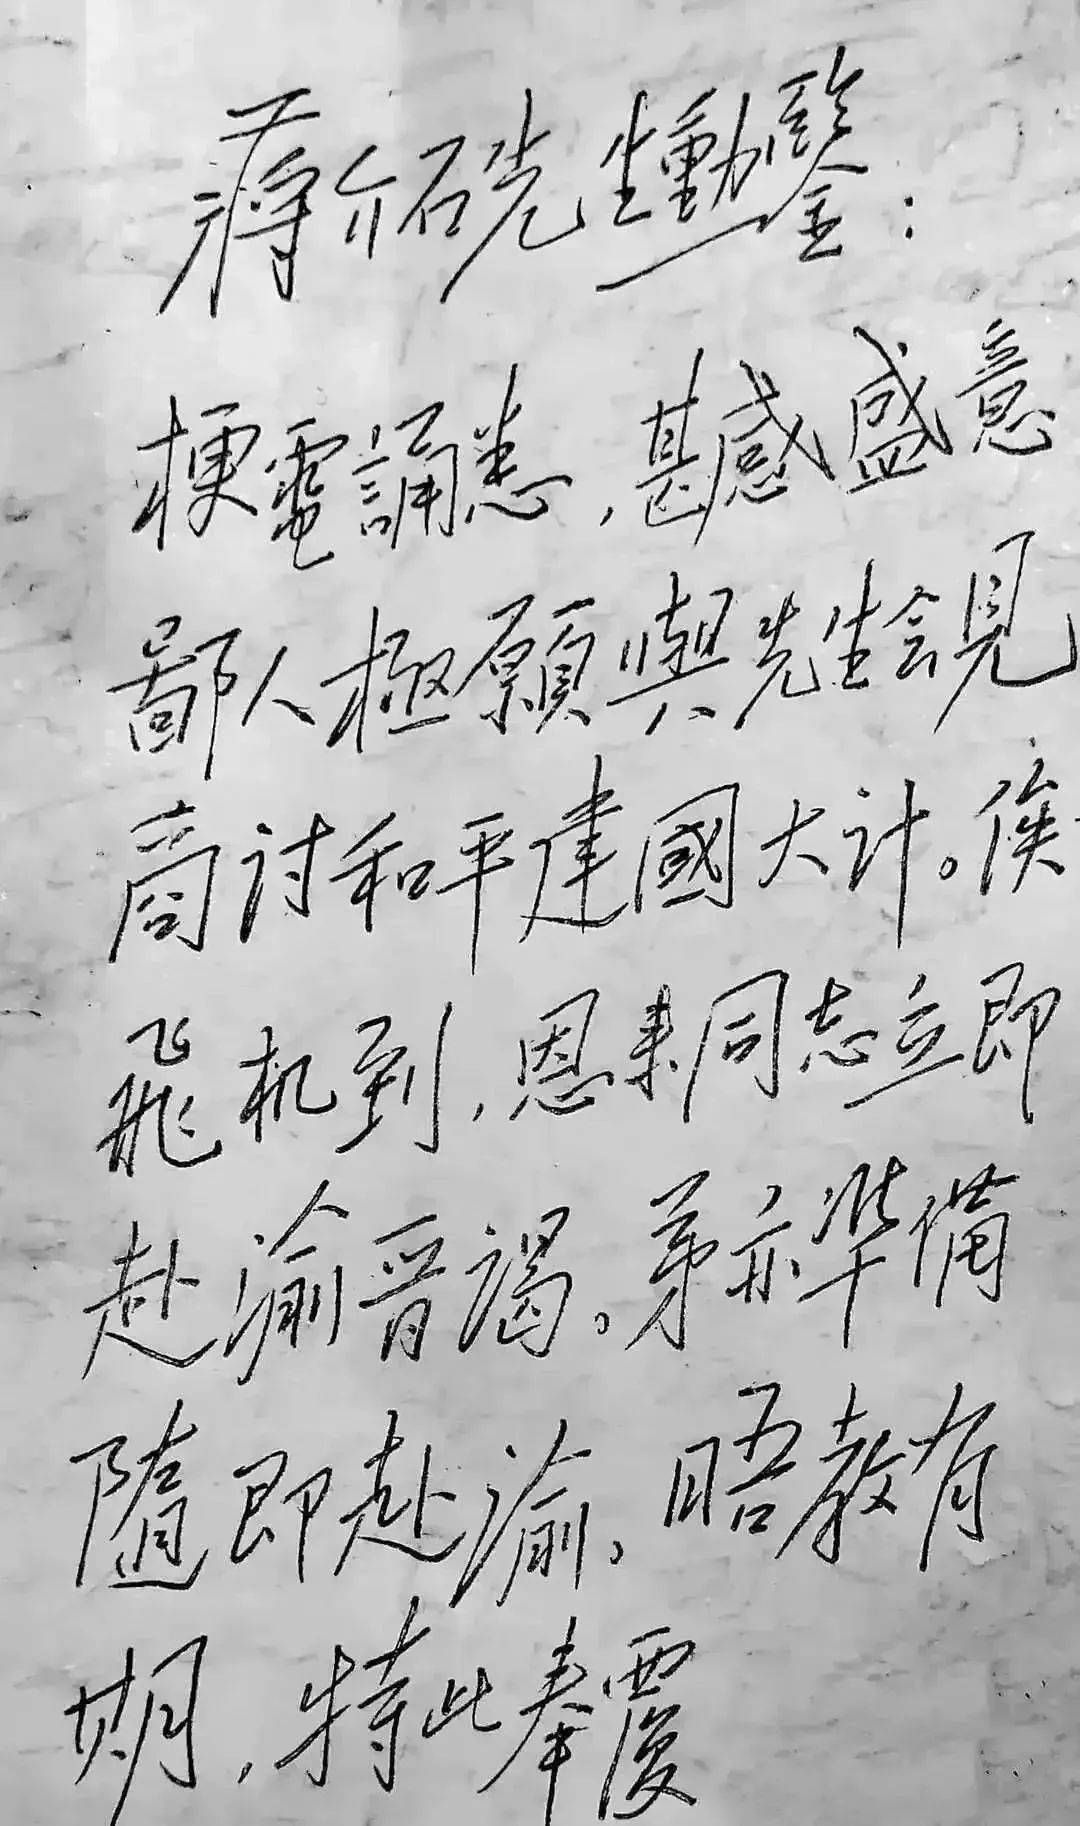 蒋介石先生勳鑒：
梗電誦悉，甚感盛意
鄙人極願與先生会見
商讨和平建國大计。俟
飛机到，恩来同志立即
赴渝晋谒。弟亦準備
隨即赴渝，晤教有
期，特此奉覆